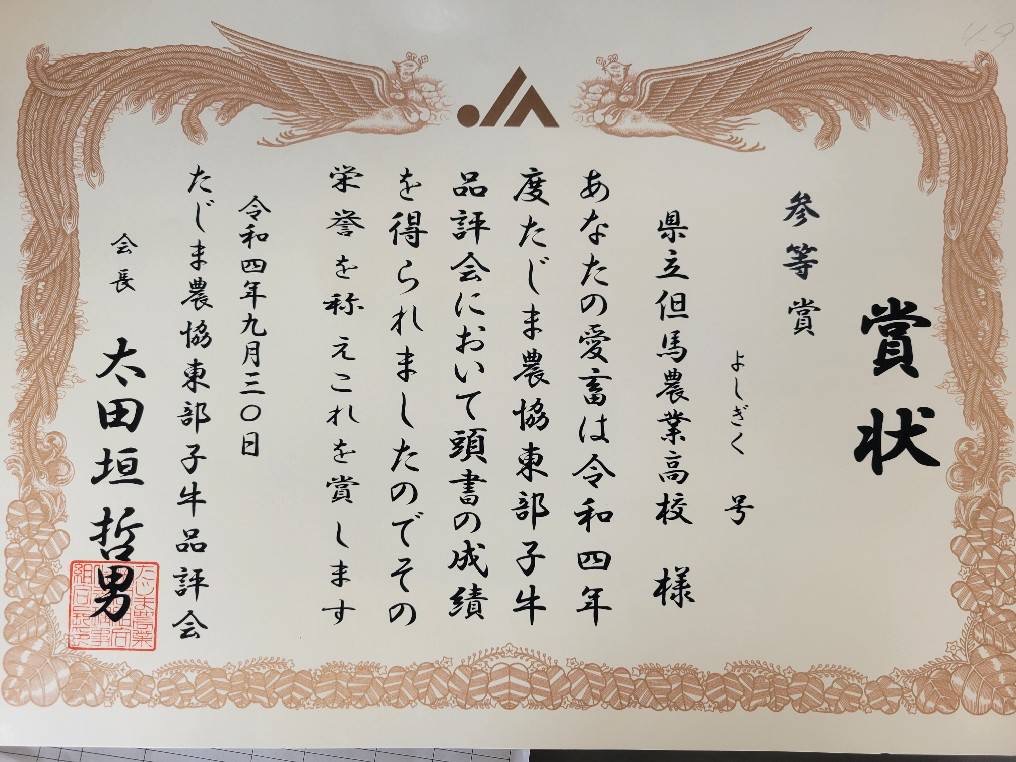 賞状
参等賞
よしぎく 号
県立但馬農業高校 様
あなたの愛畜は令和四年
度たじま農協東部子牛
品評会において頭書の成績
を得られましたのでその
栄誉を称えこれを賞します
令和四年九月三〇日
たじま農協東部子牛品評会
会長 太田垣哲男
JA